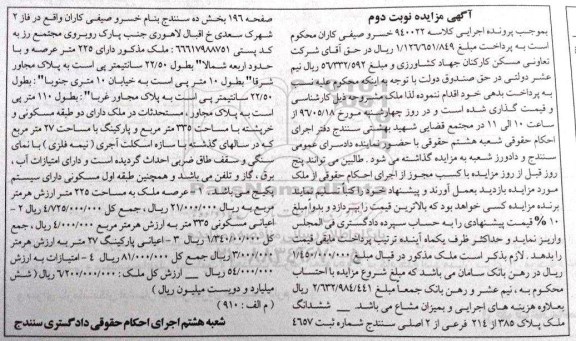 آگهی مزایده نوبت دوم
بموجب پرونده اجرایی کلاسه ۹۴۰۰۲۲ خسرو صیفی کاران محکوم
است به پرداخت مبلغ ۱/۱۲۶/۶۵۱/۸۴۹ ریال در حق آقای شرکت
تعاونی مسکن کارکنان جهاد کشاورزی و مبلغ ۵۶/۳۳۲/۵۹۲ ریال نیم
عشر دولتی در حق صندوق دولت با توجه به اینکه محکوم علیه نسبت
به پرداخت بدهی خود اقدام ننموده لذا ملک بشرح ذیل کارشناسی
و قیمت گذاری شده است و در روز چهارشنبه مورخ ۹۶/۰۵/۱۸ از
ساعت ۱۰ الی ۱۱ در مجتمع قضایی شهید بهشتی سنندج دفتر اجرای
احکام حقوقی شعبه هشتم حقوقی با حضور نماینده دادسرای عمومی
سنندج و دادورز شعبه به مزایده گذاشته می شود. طالبین توانند پنج
روز قبل از روز مزایده با کسب مجوز از اجرای احکام حقوقی از ملک
مورد مزایده بازدید بعمل آورند و پیشنهاد خود را کتبا اعلام نمایند
برنده مزایده کسی خواهد بود که بالاترین قیمت را بپردازد و بدوا مبلغ
۱۰٪ قیمت پیشنهادی را به حساب سپرده دادگستری فی المجلس
واریز نماید و حداکثر ظرف یکماه آینده ترتیب پرداخت مابقی قیمت
را بدهد. لازم بذکر است ملک مذکور در قبال مبلغ ۱/۴۵۰/۰۰۰/۰۰۰
ریال در رهن بانک سامان می باشد که مبلغ شروع مزایده با احتساب
محکوم به، نیم عشر و رهن بانک جمعاً مبلغ ۲/۶۳۲/۹۸۴/۴۴۱ ریال
بعلاوه هزینه های اجرایی و بمیزان مشاع می باشد. ششدانگ
ملک پلاک ۳۸۵ از ۲۱۴ فرعی از ۲ اصلی سنندج شماره ثبت ۴۶۵۷
صفحه ۱۹۶ بخش ده سنندج بنام خسرو صیفی کاران واقع در فاز ۲
شهرک سعدی خ اقبال لاهوری جنب پارک روبروی مجتمع رز به
کد پستی ۶۶۶۱۷۹۸۸۷۵۱ : ملک مذکور دارای ۲۲۵ متر عرصه و با
حدود اربعه شمالا" بطول ۲۲/۵۰ سانتیمتر پی است به پلاک مجاور
شرقا" بطول ۱۰ متر پی است به خیابان ۱۰ متری جنوبا" : بطول
۲۲/۵۰ سانتیمتر پی است به پلاک مجاور غربا" : بطول ۱۱۰ متر پی
است به پلاک مجاور، مستحدثات در ملک دارای دو طبقه مسکونی و
خرپشته با مساحت ۳۳۵ متر مربع و پارکینگ با مساحت ۲۷ متر مربع
که در سالهای گذشته با سازه اسکلت آجری (نیمه فلزی) با نمای
سنگی و سقف طاق ضربی احداث گردیده است و دارای امتیازات آب،
برق، گاز و تلفن می باشد و همچنین طبقه اول مسکونی دارای سیستم
پکیج می باشد عرصه ملک به مساحت ۲۲۵ متر ارزش هرمتر
مربع به ریال ۲۱/۰۰۰/۰۰۰ ریال، جمع کل ۴/۷۲۵/۰۰۰/۰۰۰ ریال ۲ -
اعیانی مسکونی ۳۳۵ متر به ارزش هرمتر مربع ۴/۰۰۰/۰۰۰ ریال، جمع
کل ۱/۳۴۰/۰۰۰/۰۰۰ ریال ۳ - اعیانی پارکینگ ۲۷ متر به ارزش هرمتر
مربع ۳/۰۰۰/۰۰۰ ریال جمع کل ۸۱/۰۰۰/۰۰۰ ریال ۴ - امتیازات به ارزش
۵۴/۰۰۰/۰۰۰ ریال ــ ارزش کل ملک : ۶/۲۰۰/۰۰۰/۰۰۰ ریال (شش
میلیارد و دویست میلیون ریال)
(م الف : ۹۱۰)
شعبه هشتم اجرای احکام حقوقی دادگستری سنندج